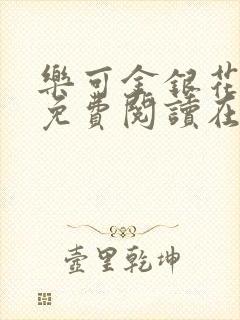 樂可金銀花
免費閱讀在
壺里乾坤